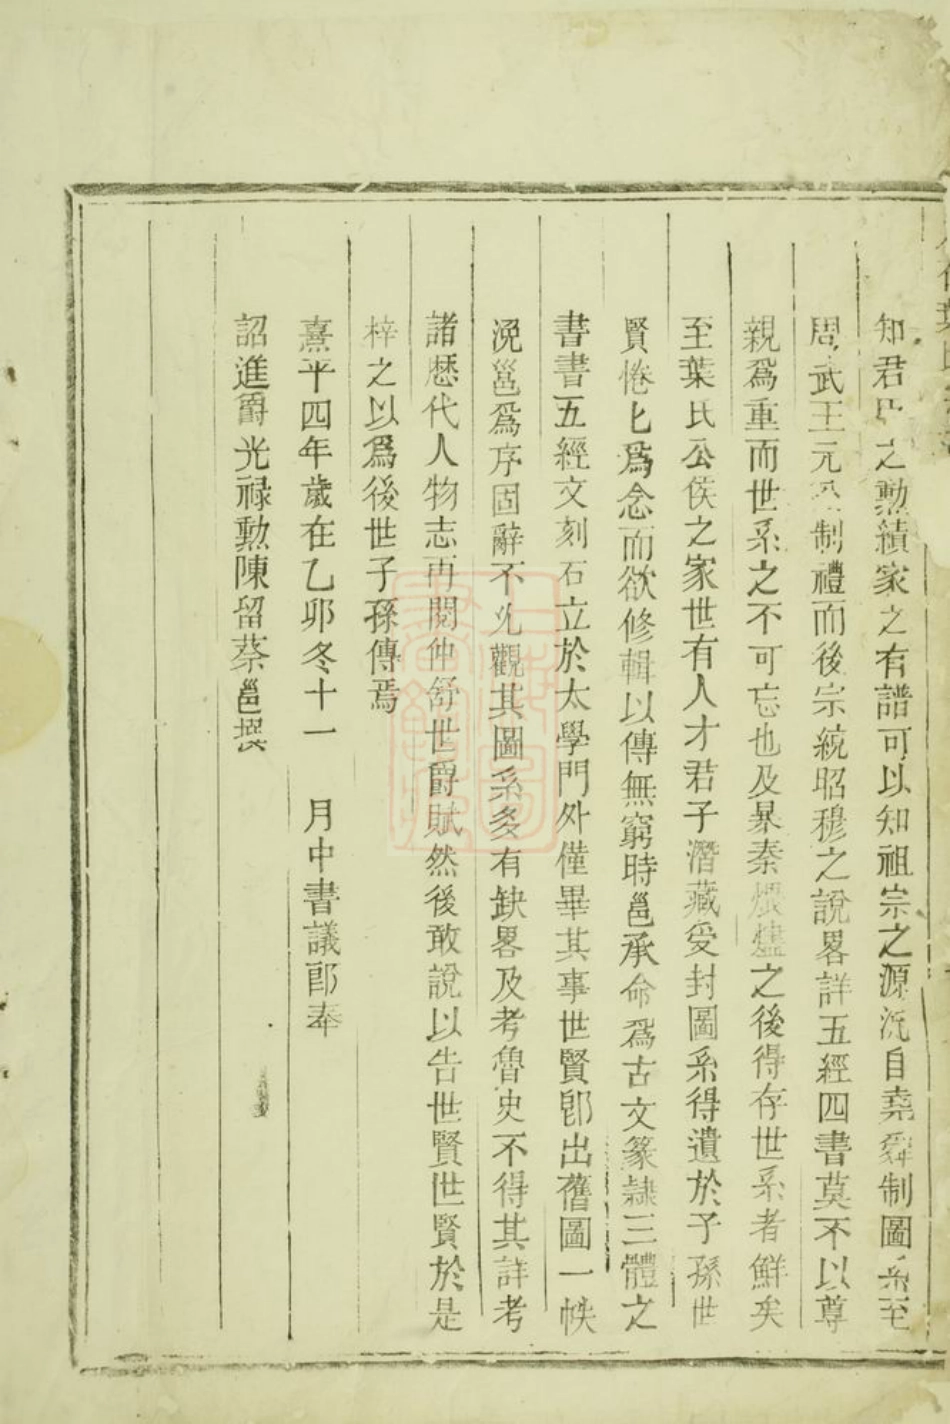 知君臣之勲績家之有譜可以知祖宗之源流自堯舜制圖系至
周武王元公制禮而後宗統昭穆之說畧詳五經四書莫不以尊
親爲重而世系之不可忘也及暴秦煨燼之後得存世系者鮮矣
至葉氏公侯之家世有人才君子潛藏受封圖系得遺於子孫世
賢惓匕爲念而欲修輯以傳無窮時邕承命爲古文篆隷三體之
書書五經文刻石立於太學門外僅畢其事世賢卽出舊圖一帙
浼邕爲序固辭不允觀其圖系多有缺畧及考魯史不得其詳考
諸歷代人物志再閱仲舒世爵賦然後敢說以告世賢世賢於是
梓之以爲後世子孫傳焉
熹平四年歲在乙卯冬十一 月中書議郎奉
詔進爵光禄勲陳留蔡邕撰